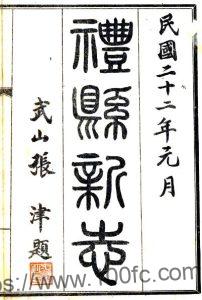 民國二十二年元月
禮縣新志
武山張津題
https://www.100fc.com